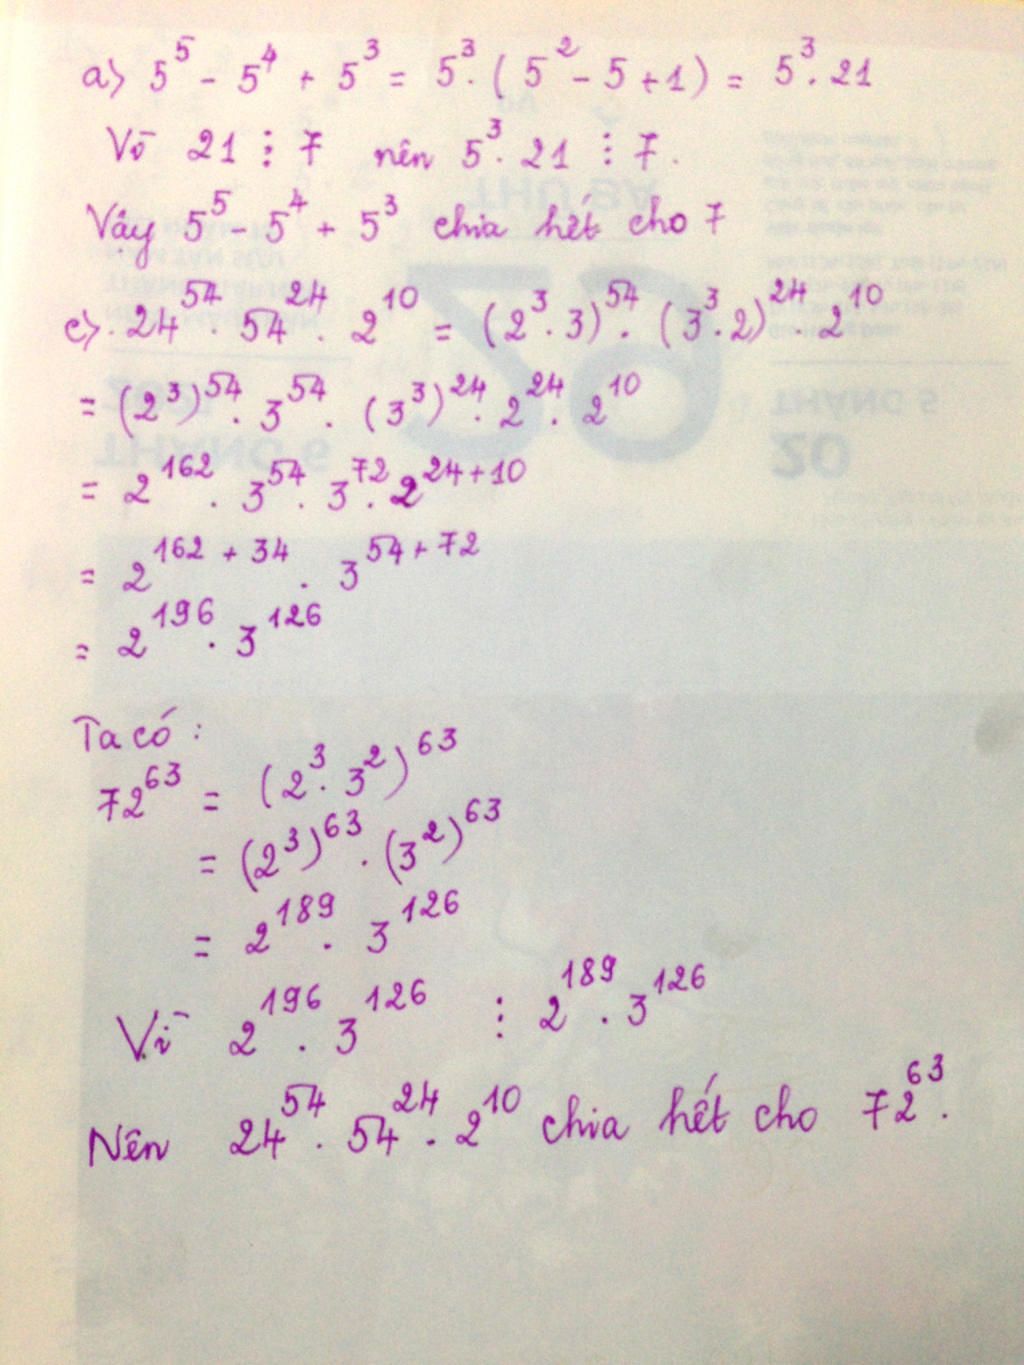 a) 5⁵ - 5⁴ + 5³ = 5³ . ( 5² - 5 + 1 ) = 5³ . 21
Vì 21 ⋮ 7 nên 5³ . 21 ⋮ 7 .
Vậy 5⁵ - 5⁴ + 5³ chia hết cho 7
c) . 24⁵⁴ . 54²⁴ . 2¹⁰ = (2³ . 3)⁵⁴ . (3³ . 2)²⁴ . 2¹⁰
= (2³)⁵⁴ . 3⁵⁴ . (3³)²⁴ . 2²⁴ . 2¹⁰
= 2¹⁶² . 3⁵⁴ . 3⁷² . 2²⁴⁺¹⁰
= 2¹⁶² ⁺ ³⁴ . 3⁵⁴⁺⁷²
= 2¹⁹⁶ . 3¹²⁶
Ta có :
72⁶³ = (2³ . 3²)⁶³
= (2³)⁶³ . (3²)⁶³
= 2¹⁸⁹ . 3¹²⁶
Vì 2¹⁹⁶ . 3¹²⁶ ⋮ 2¹⁸⁹ . 3¹²⁶
Nên 24⁵⁴ . 54²⁴ . 2¹⁰ chia hết cho 72⁶³ .